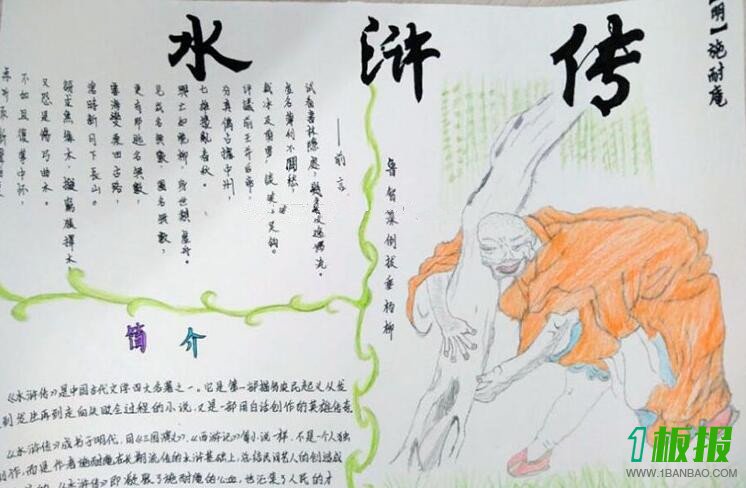 水浒传
【明】施耐庵
——前言
试看书林隐处,几多俊逸儒流。
虚名薄利不关愁,
裁冰及剪雪,谈笑看吴钩。
评议前王并后帝,
分真伪占据中州,
七雄扰乱春秋。
兴亡如脆柳,身世类虚舟。
见成名无数,图名无数,
更有那逃名无数,
变桑田古路,
霎时新月下长川。
求鱼缘木,拟穷猿择木,
又恐是伤弓曲木。
不如且覆掌中杯,
鲁智深倒拔垂杨柳
简介
《水浒传》是中国古代文学四大名著之一。它是第一部描写农民起义从发
到发展再到走向失败全过程的小说,又是一部用白话创作的英雄传奇
《水浒传》成书于明代,同《三国演义》、《西游记》等小说一样,不是一个人独
创作,而是作者施耐庵在长期流传的水浒基础上,总结民间艺人的创造成
《水浒传》即凝聚了施耐庵的心血,也汇集了人民的才
1板报
WWW.1BANBAO.COM